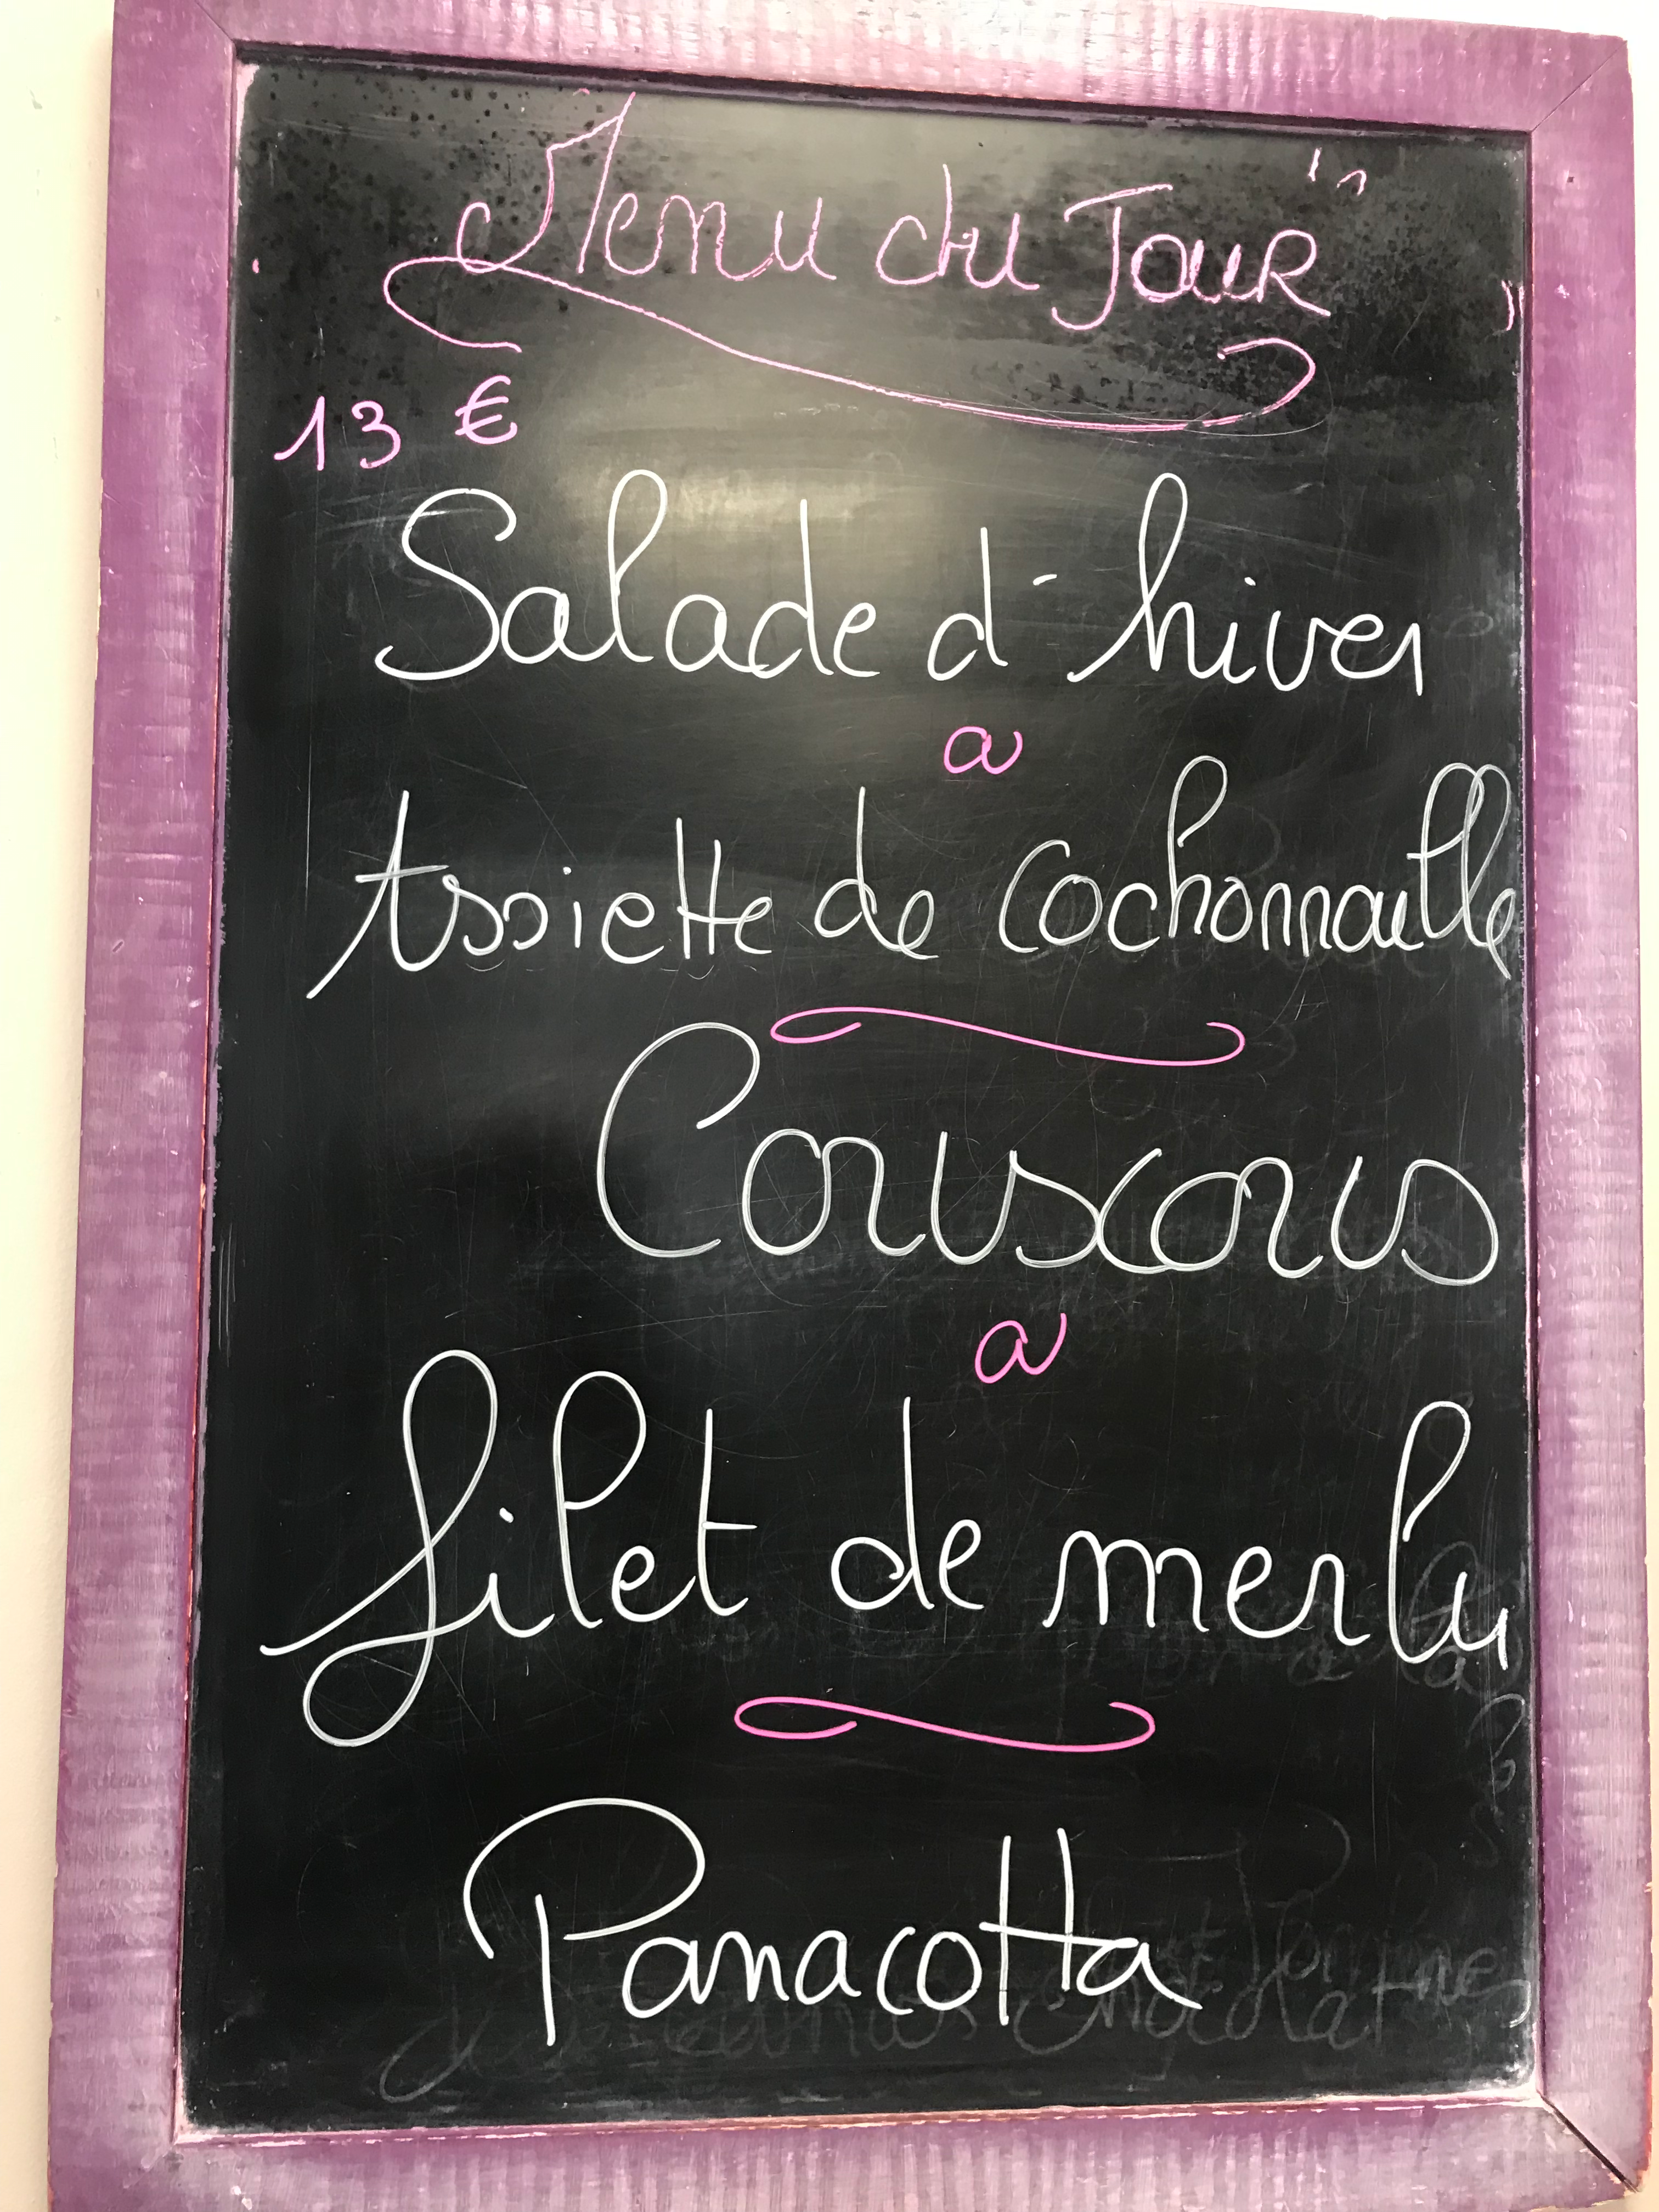 Menu du Jour
13 €
Salade d'hiver
Assiette de cochonnaille
Couscous
filet de merlu
Panacotta